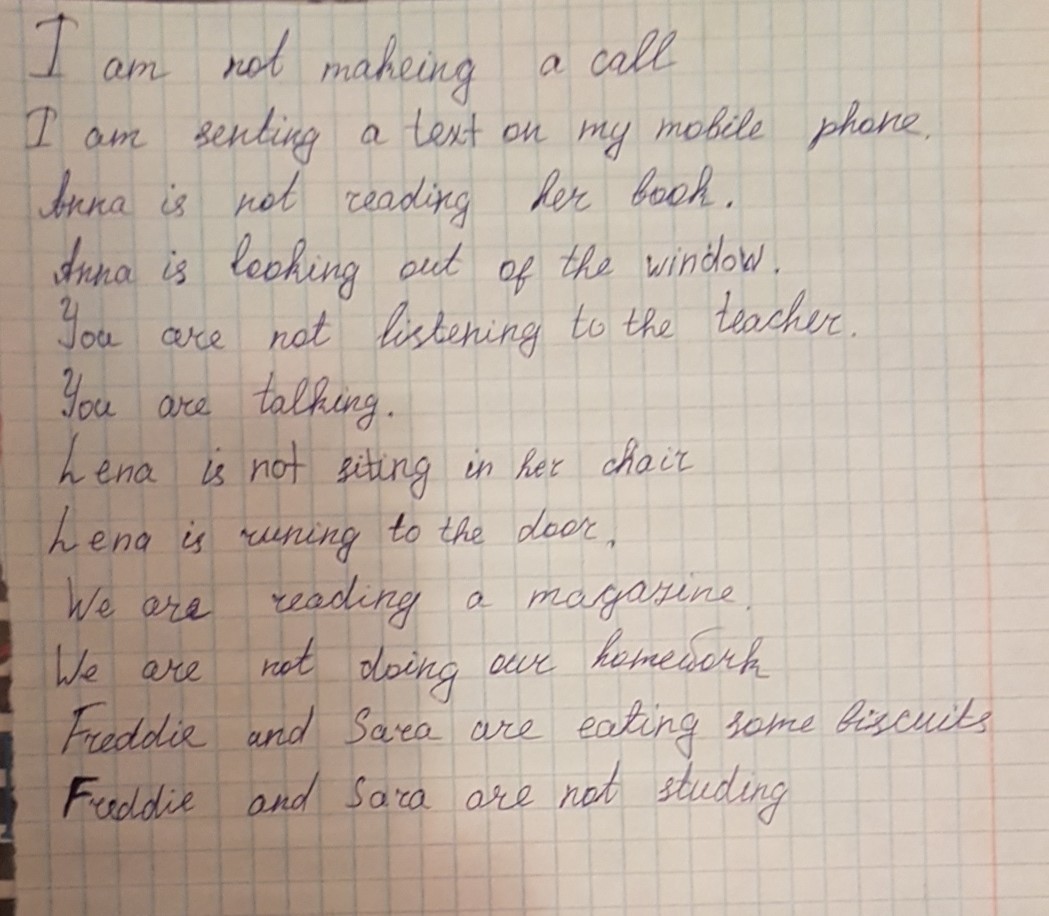 I am not makeing a call
I am senting a text on my mobile phone.
Anna is not reading her book.
Anna is looking out of the window.
You are not listening to the teacher.
You are talking.
Lena is not siting in her chair
Lena is runing to the door.
We are reading a magazine.
We are not doing our homework
Freddie and Sara are eating some biscuits
Freddie and Sara are not studing